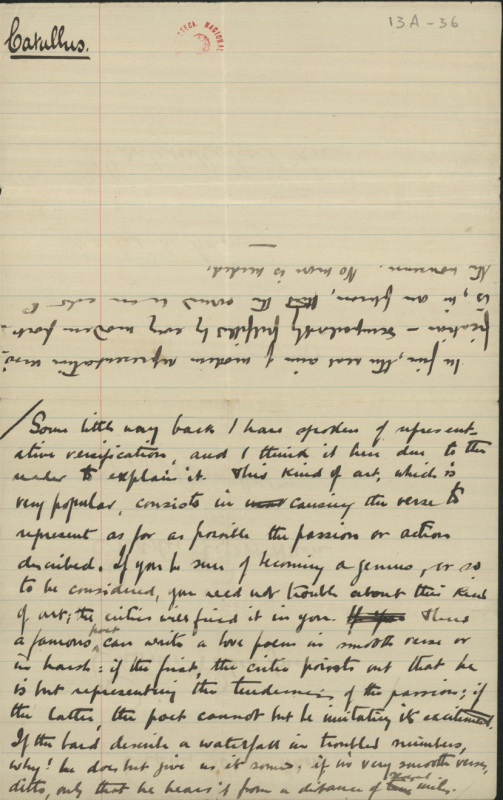 13A-36
Catullus.
BIBLIOTECA NACIONAL
In fine, the real aim of modern representative versi-
fication — completely fulfilled by every modern poet —
is, in one person, the sound is an echo to
the nonsense. No more is needed.
Some little way back I have spoken of represent-
ative versification, and I think it here due to the
reader to explain it. This kind of art, which is
very popular, consists in causing the verse to
represent as far as possible the passion or action
described. If you be sure of becoming a genius, or so
to be considered, you need not trouble about this kind
of art; the critics will find it in you. Thus
a famous poet can write a love poem in smooth verse or
in harsh: if the first, the critic points out that he
is but representing the tenderness of the passion; if
the latter, the poet cannot but be imitating its excitement.
If the bard describe a waterfall in troubled numbers,
why! he does but give us its sound; if in very smooth verse,
ditto, only that he hears it from a distance of several miles.